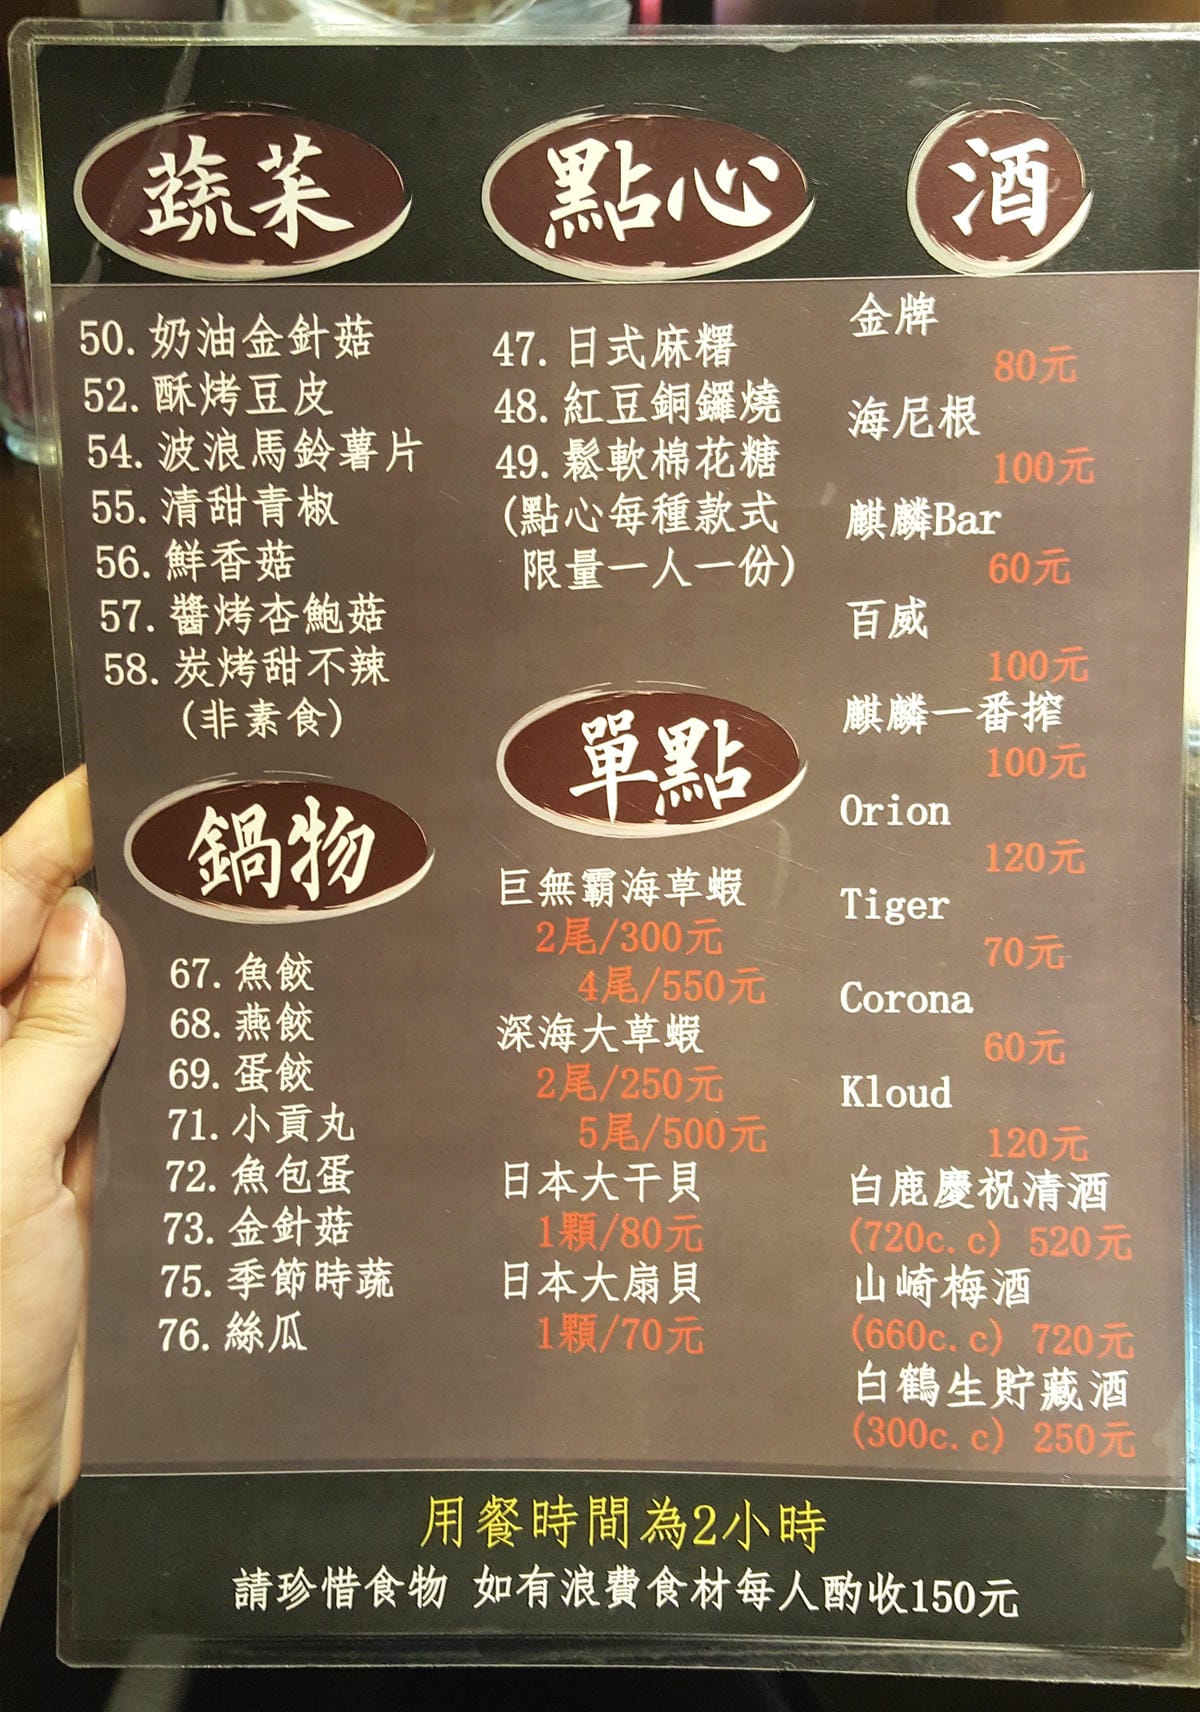 蔬菜
50.奶油金針菇
52.酥烤豆皮
54.波浪馬鈴薯片
55.清甜青椒
56.鮮香菇
57.醬烤杏鮑菇
58.炭烤甜不辣
(非素食)
鍋物
67.魚餃
68.燕餃
69.蛋餃
71.小貢丸
72.魚包蛋
73.金針菇
75.季節時蔬
76.絲瓜
點心
47.日式麻糬
48.紅豆銅鑼燒
49.鬆軟棉花糖
(點心每種款式
限量一人一份)
單點
巨無霸海草蝦
2尾/300元
4尾/550元
深海大草蝦
2尾/250元
5尾/500元
日本大干貝
1顆/80元
日本大扇貝
1顆/70元
酒
金牌
80元
海尼根
100元
麒麟Bar
60元
百威
100元
麒麟一番搾
100元
Orion
120元
Tiger
70元
Corona
60元
Kloud
120元
白鹿慶祝清酒
(720c.c) 520元
山崎梅酒
(660c.c) 720元
白鶴生貯藏酒
(300c.c) 250元
用餐時間為2小時
請珍惜食物 如有浪費食材每人酌收150元